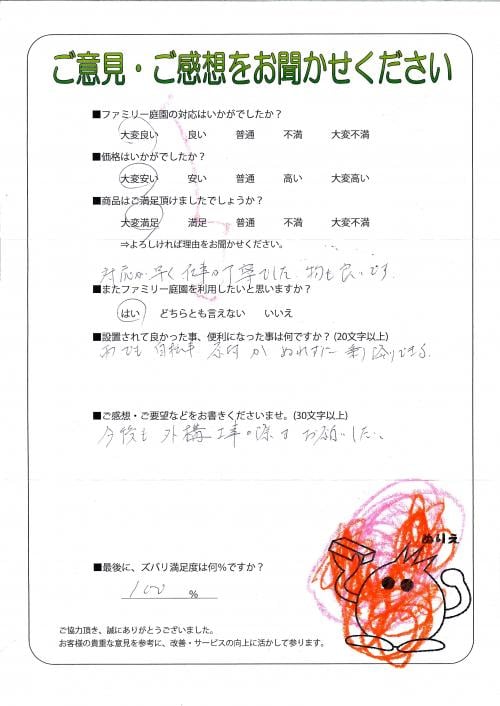 ご意見・ご感想をお聞かせください
■ファミリー庭園の対応はいかがでしたか？
大変良い 良い 普通 不満 大変不満
■価格はいかがでしたか？
大変安い 安い 普通 高い 大変高い
■商品はご満足頂けましたでしょうか？
大変満足 満足 普通 不満 大変不満
⇒よろしければ理由をお聞かせください。
対応が早く仕事が丁寧でした。物も良いです。
■またファミリー庭園を利用したいと思いますか？
はい どちらとも言えない いいえ
■設置されて良かった事、便利になった事は何ですか？(20文字以上)
雨でも 自転車 が ぬれずに 乗り降りできる。
■ご感想・ご要望などをお書きくださいませ。(30文字以上)
今後も 外構工事の際は お願いしたい。
ぬりえ
■最後に、ズバリ満足度は何%ですか？
100 %
ご協力頂き、誠にありがとうございました。
お客様の貴重な意見を参考に、改善・サービスの向上に活かして参ります。